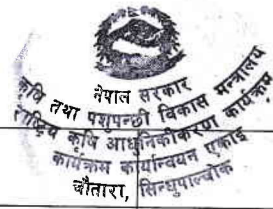 नेपाल सरकार
कृषि तथा पशुपन्छी विकास मन्त्रालय
राष्ट्रिय कृषि आधुनिकीकरण कार्यक्रम
कार्यक्रम कार्यान्वयन एकाइ
चौतारा, सिन्धुपाल्चोक